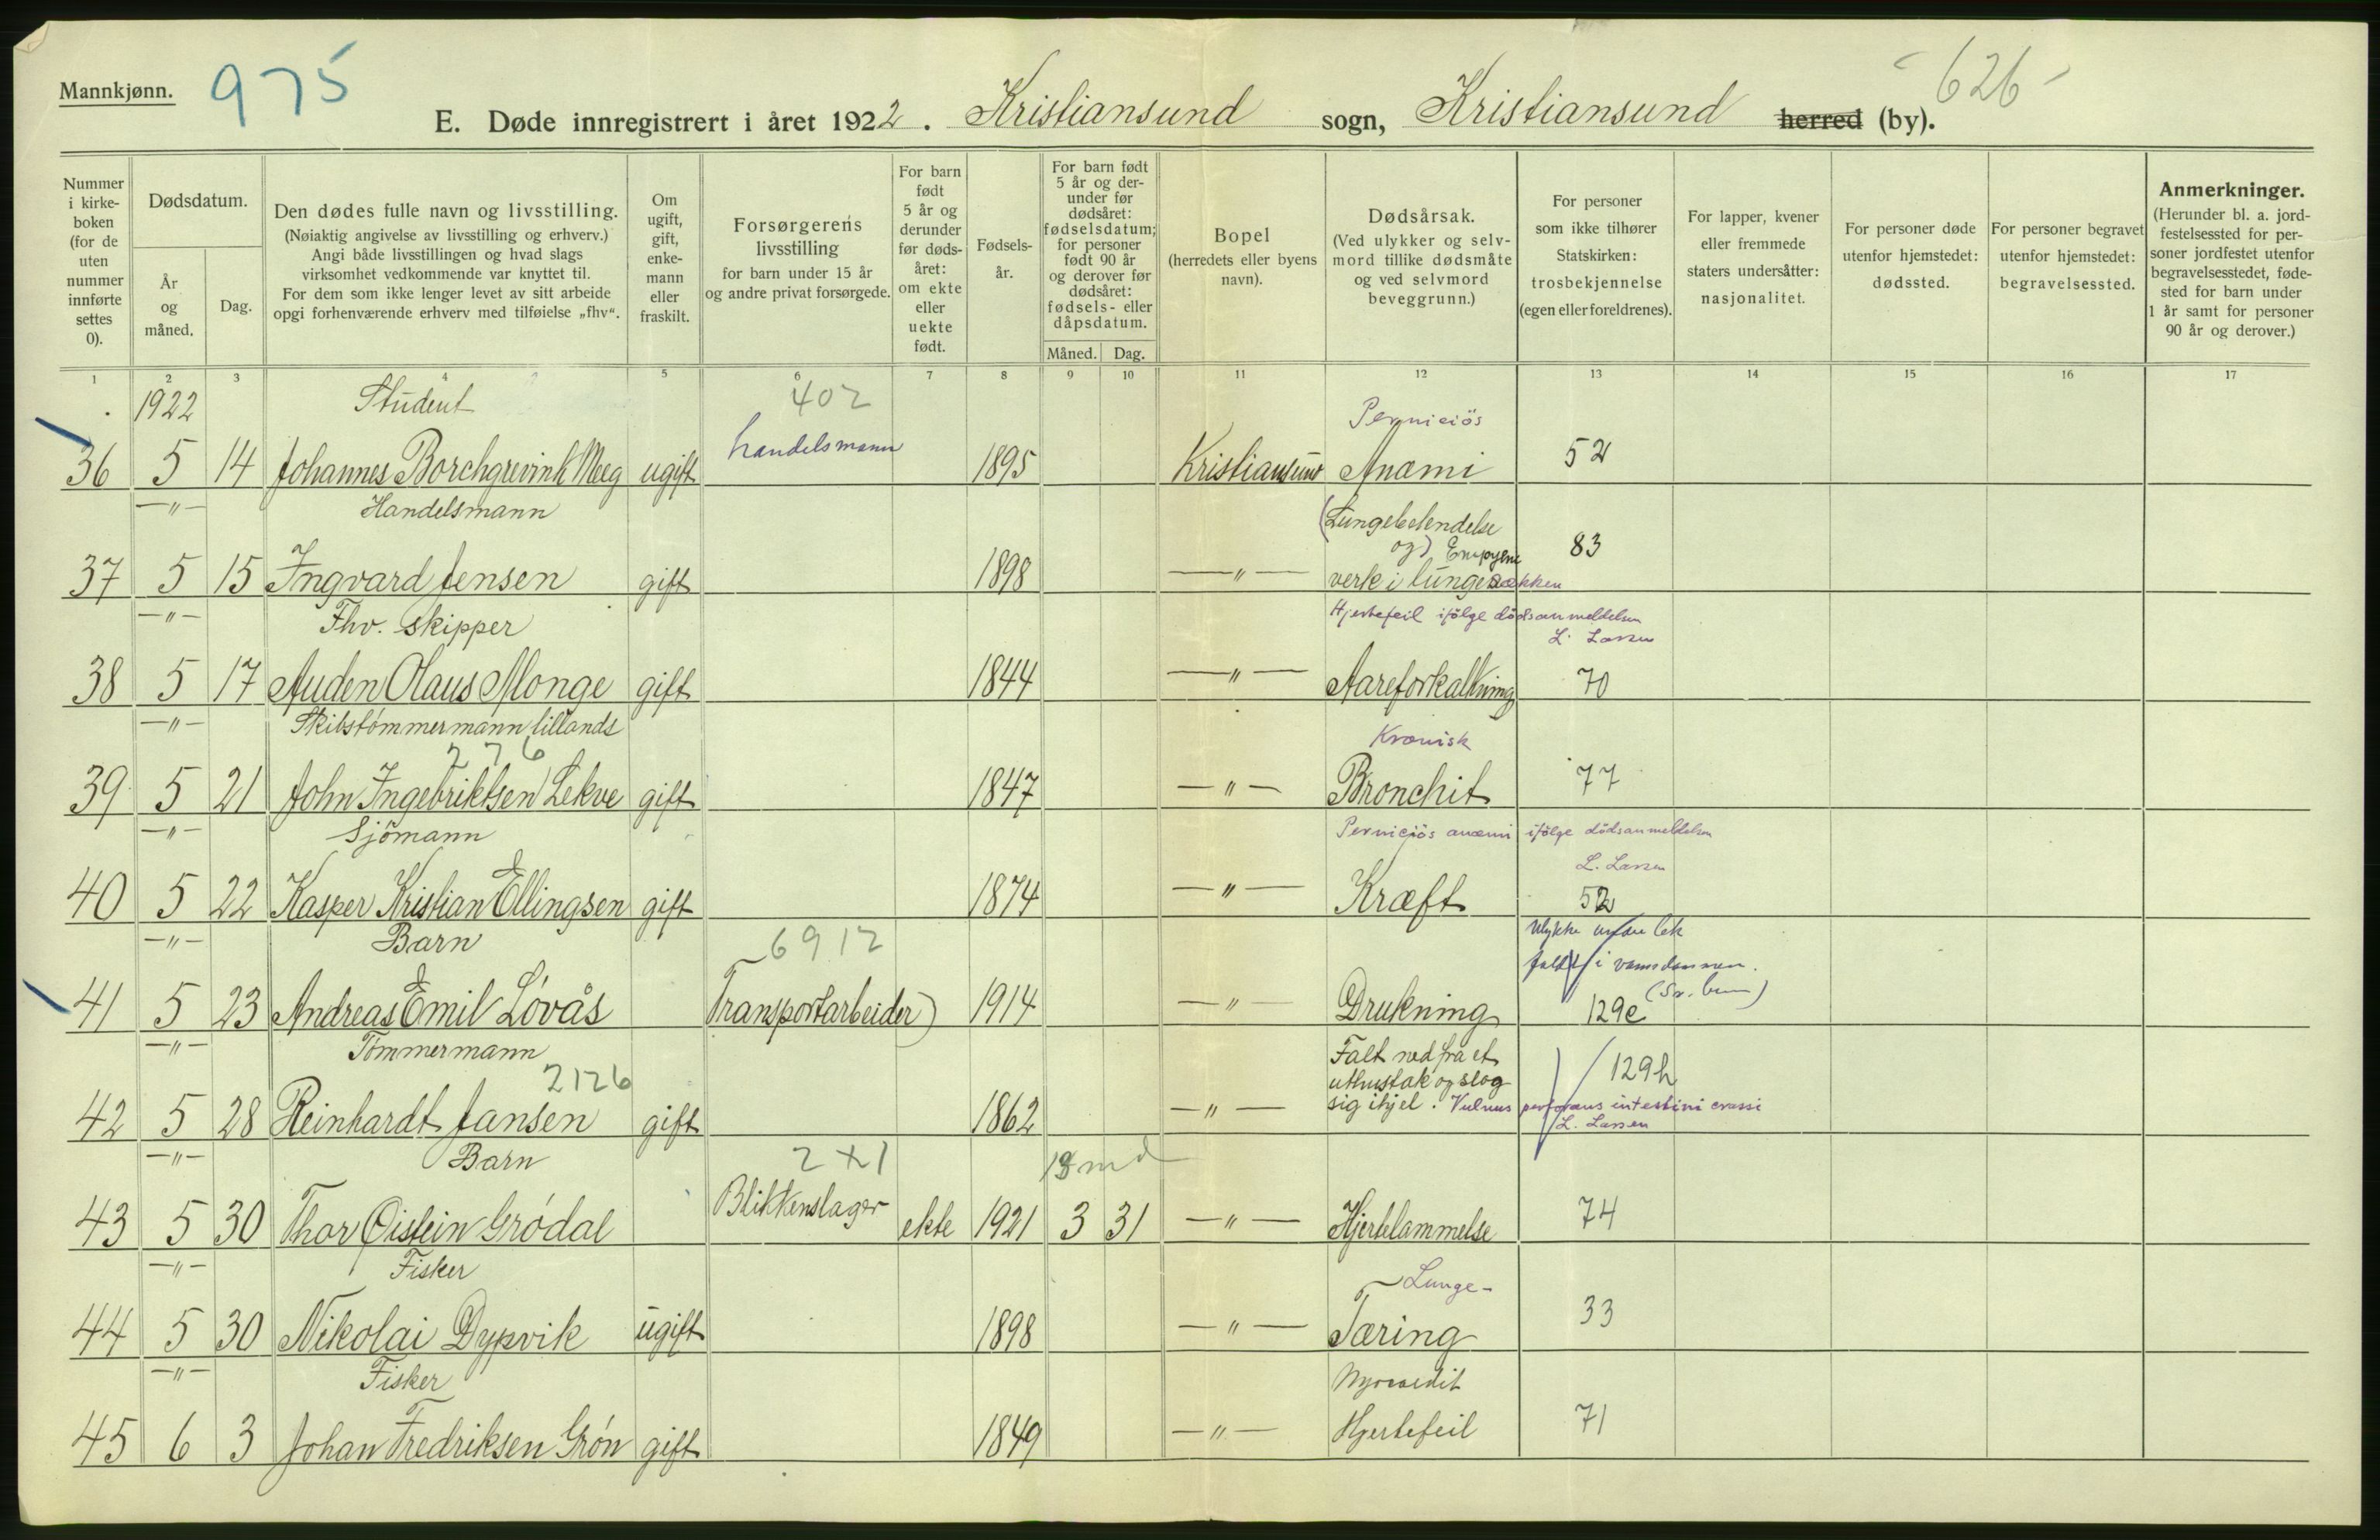 Mannkjønn.
975
- 626 -
E. Døde innregistrert i året 1922. Kristiansund sogn, Kristiansund herred (by).
Nummer i kirke-boken (for de uten nummer innførte settes 0).
Dødsdatum.
År og måned.
Dag.
Den dødes fulle navn og livsstilling.
(Nøiaktig angivelse av livsstilling og erhverv.)
Angi både livsstillingen og hvad slags
virksomhet vedkommende var knyttet til.
For dem som ikke lenger levet av sitt arbeide
opgi forhenværende erhverv med tilføielse „fhv“.
Om ugift, gift, enke-mann eller fraskilt.
Forsørgerens livsstilling
for barn under 15 år
og andre privat forsørgede.
For barn født 5 år og derunder før døds-året: om ekte eller uekte født.
Fødsels-år.
For barn født 5 år og der-under før dødsåret: fødselsdatum; for personer født 90 år og derover før dødsåret: fødsels- eller dåpsdatum.
Måned. Dag.
Bopel
(herredets eller byens navn).
Dødsårsak.
(Ved ulykker og selv-mord tillike dødsmåte og ved selvmord beveggrunn.)
For personer som ikke tilhører Statskirken: trosbekjennelse (egen eller foreldrenes).
For lapper, kvener eller fremmede staters undersåtter: nasjonalitet.
For personer døde utenfor hjemstedet: dødssted.
For personer begravet utenfor hjemstedet: begravelsessted.
Anmerkninger.
(Herunder bl. a. jord-festelsessted for per-soner jordfestet utenfor begravelsesstedet, føde-sted for barn under 1 år samt for personer 90 år og derover.)
1 2 3 4 5 6 7 8 9 10 11 12 13 14 15 16 17
1922 Student 402 Perniciös
36 5 14 Johannes Borchgrevink Meeg ugift handelsmann 1895 Kristiansund Anæmi 52
—„— Handelsmann (Lungebetendelse
og) Empyem 83
37 5 15 Ingvard Jensen gift 1898 —„— verk i lungesekken
—„— Fhv. skipper Hjertefeil ifölge dödsanmeldelsen
L. Larsen
38 5 17 Auden Olaus Monge gift 1844 —„— Aareforkalkning 70
—„— Skibstömmermann tillands Kronisk
276
39 5 21 John Ingebriktsen Lekve gift 1847 —„— Bronchit 77
—„— Sjömann Perniciös anæmi ifölge dödsanmeldelsen
L. Larsen
40 5 22 Kasper Kristian Ellingsen gift 1874 —„— Kræft 52
—„— Barn 6912 Ulykke under lek
faldt i vanndammen.
41 5 23 Andreas Emil Lövås Transportarbeider) 1914 —„— Drukning 129e
—„— Tömmermann Falt ned fra et
2126 uthustak og slog 129h
42 5 28 Reinhardt Jansen gift 1862 —„— sig ihjel. Vulnus perforans intestini crassi
L. Larsen
—„— Barn 2 x 1 13 md
43 5 30 Thor Öistein Grödal Blikkenslager ekte 1921 3 31 —„— Hjertelammelse 74
—„— Fisker Lunge-
44 5 30 Nikolai Dypvik ugift 1898 —„— Tæring 33
—„— Fisker Myocardit
45 6 3 Johan Fredriksen Grön gift 1849 —„— Hjertefeil 71